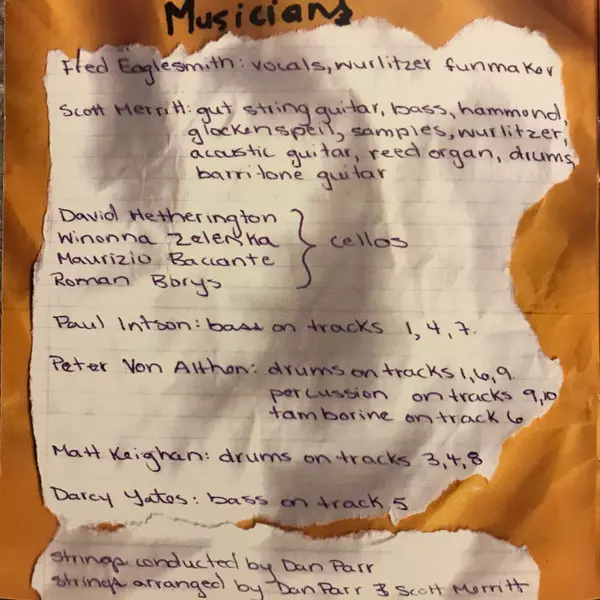 Musicians
Fred Eaglesmith: vocals, wurlitzer funmaker
Scott Merritt: gut string guitar, bass, hammond,
glockenspeil, samples, wurlitzer,
acoustic guitar, reed organ, drums,
barritone guitar
David Hetherington
Winonna Zelenka
Maurizio Baccante
Roman Bbrys
} cellos
Paul Intson: bass on tracks 1, 4, 7.
Peter Von Althen: drums on tracks 1, 6, 9
percussion on tracks 9, 10
tamborine on track 6
Matt Keighan: drums on tracks 3, 4, 8
Darcy Yates: bass on track 5
strings conducted by Dan Parr
strings arranged by Dan Parr & Scott Merritt